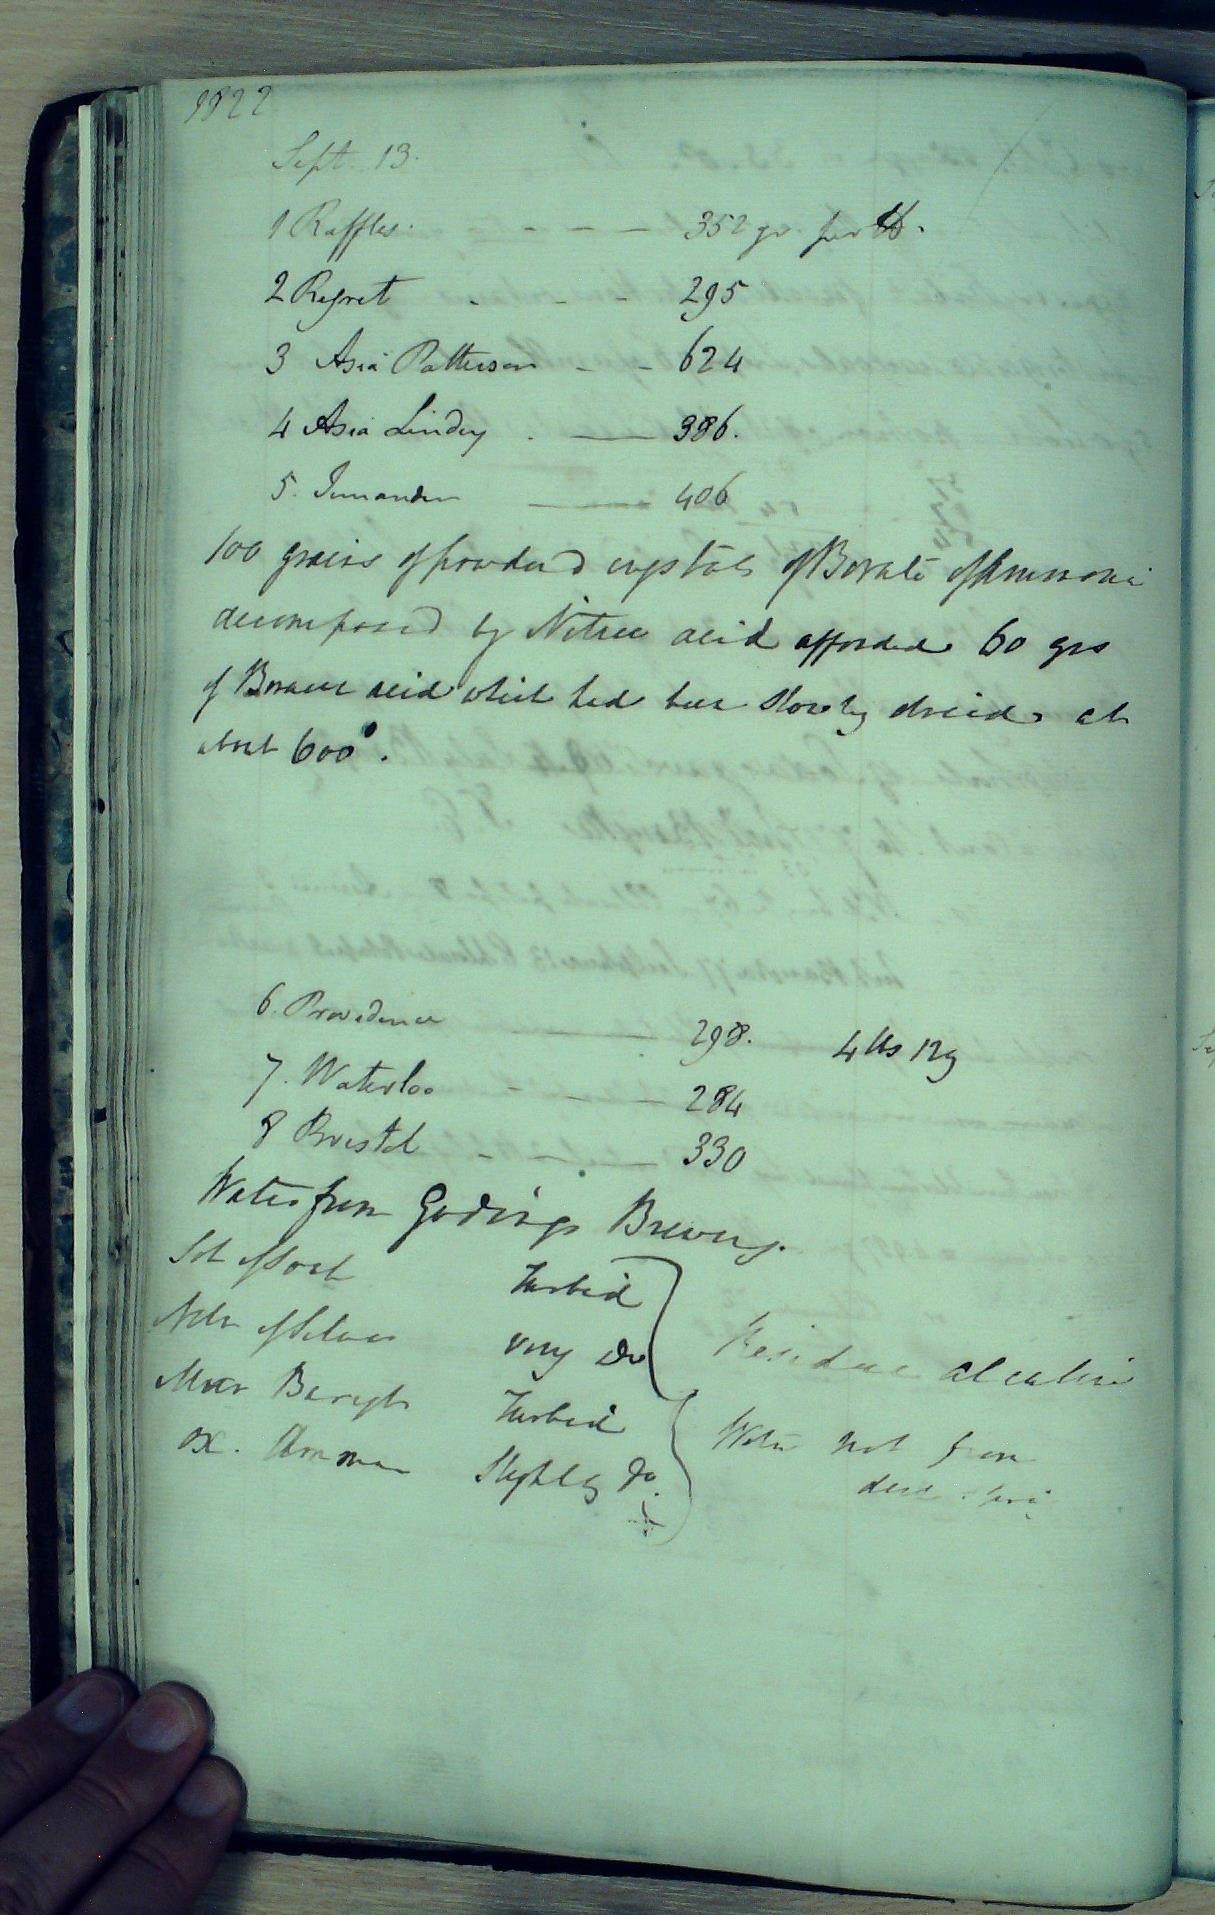 1822
Sept. 13.
1 Raffles. - - - 352 gr. per lb.
2 Regret - - - 295
3 Asia Patterson - - 624
4 Asia Lindsy . — 386.
5. — 406
100 grains of powdered crystals of Borate of Ammonia
decomposed by Nitric acid afforded 60 grs
of Boracic acid which had been slowly dried at
about 600°.
6. Providence — 298. 4 lbs 129
7. Waterloo - - - 284
8 Bristol - - - 330
Water from Godings Brewery.
Sol of Soap Turbid
Nitr of Silver very do Residue alcaline
Mur Barytes Turbid
Water not from
ox. Ammon Slightly do.
deep